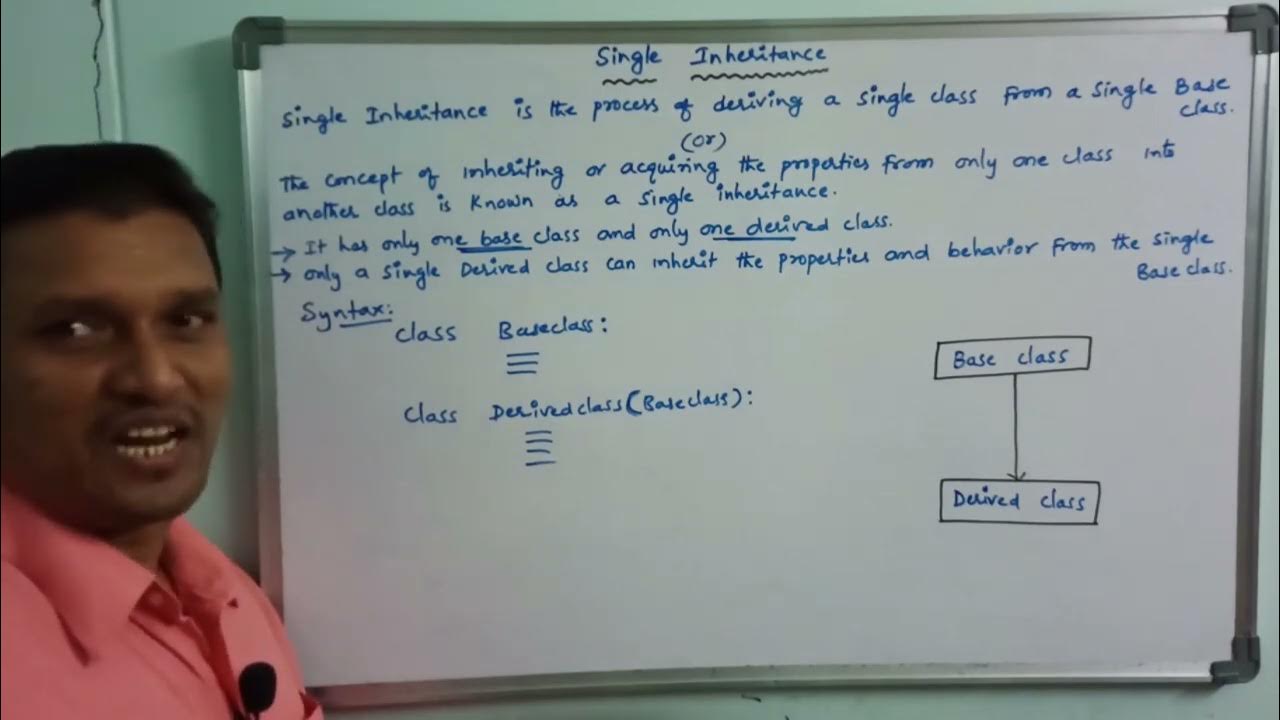 Single Inheritance
Single Inheritance is the process of deriving a single class from a single Base
class.
(or)
The concept of inheriting or acquiring the properties from only one class into
another class is known as a single inheritance.
→ It has only one base class and only one derived class.
→ only a single Derived class can inherit the properties and behavior from the single
Base class.
Syntax:
class Baseclass:
class Derivedclass(Baseclass):
Base class
Derived class